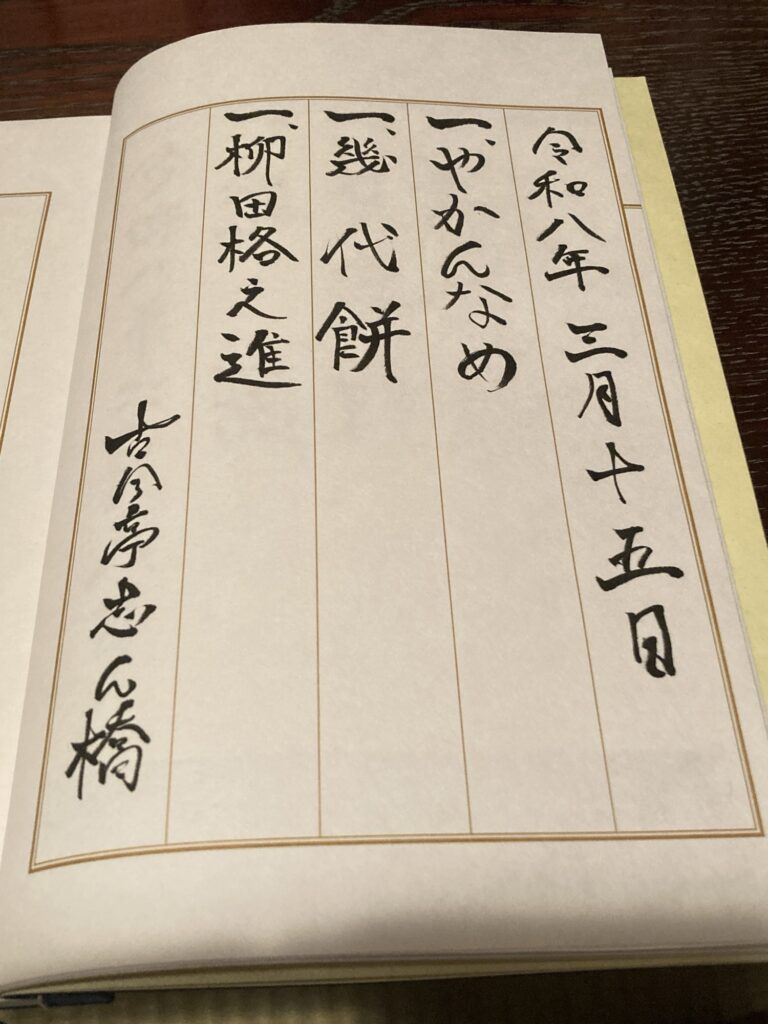 令和八年 三月十五日
一、やかんなめ
一、幾代餅
一、柳田格之進
古今亭志ん橋